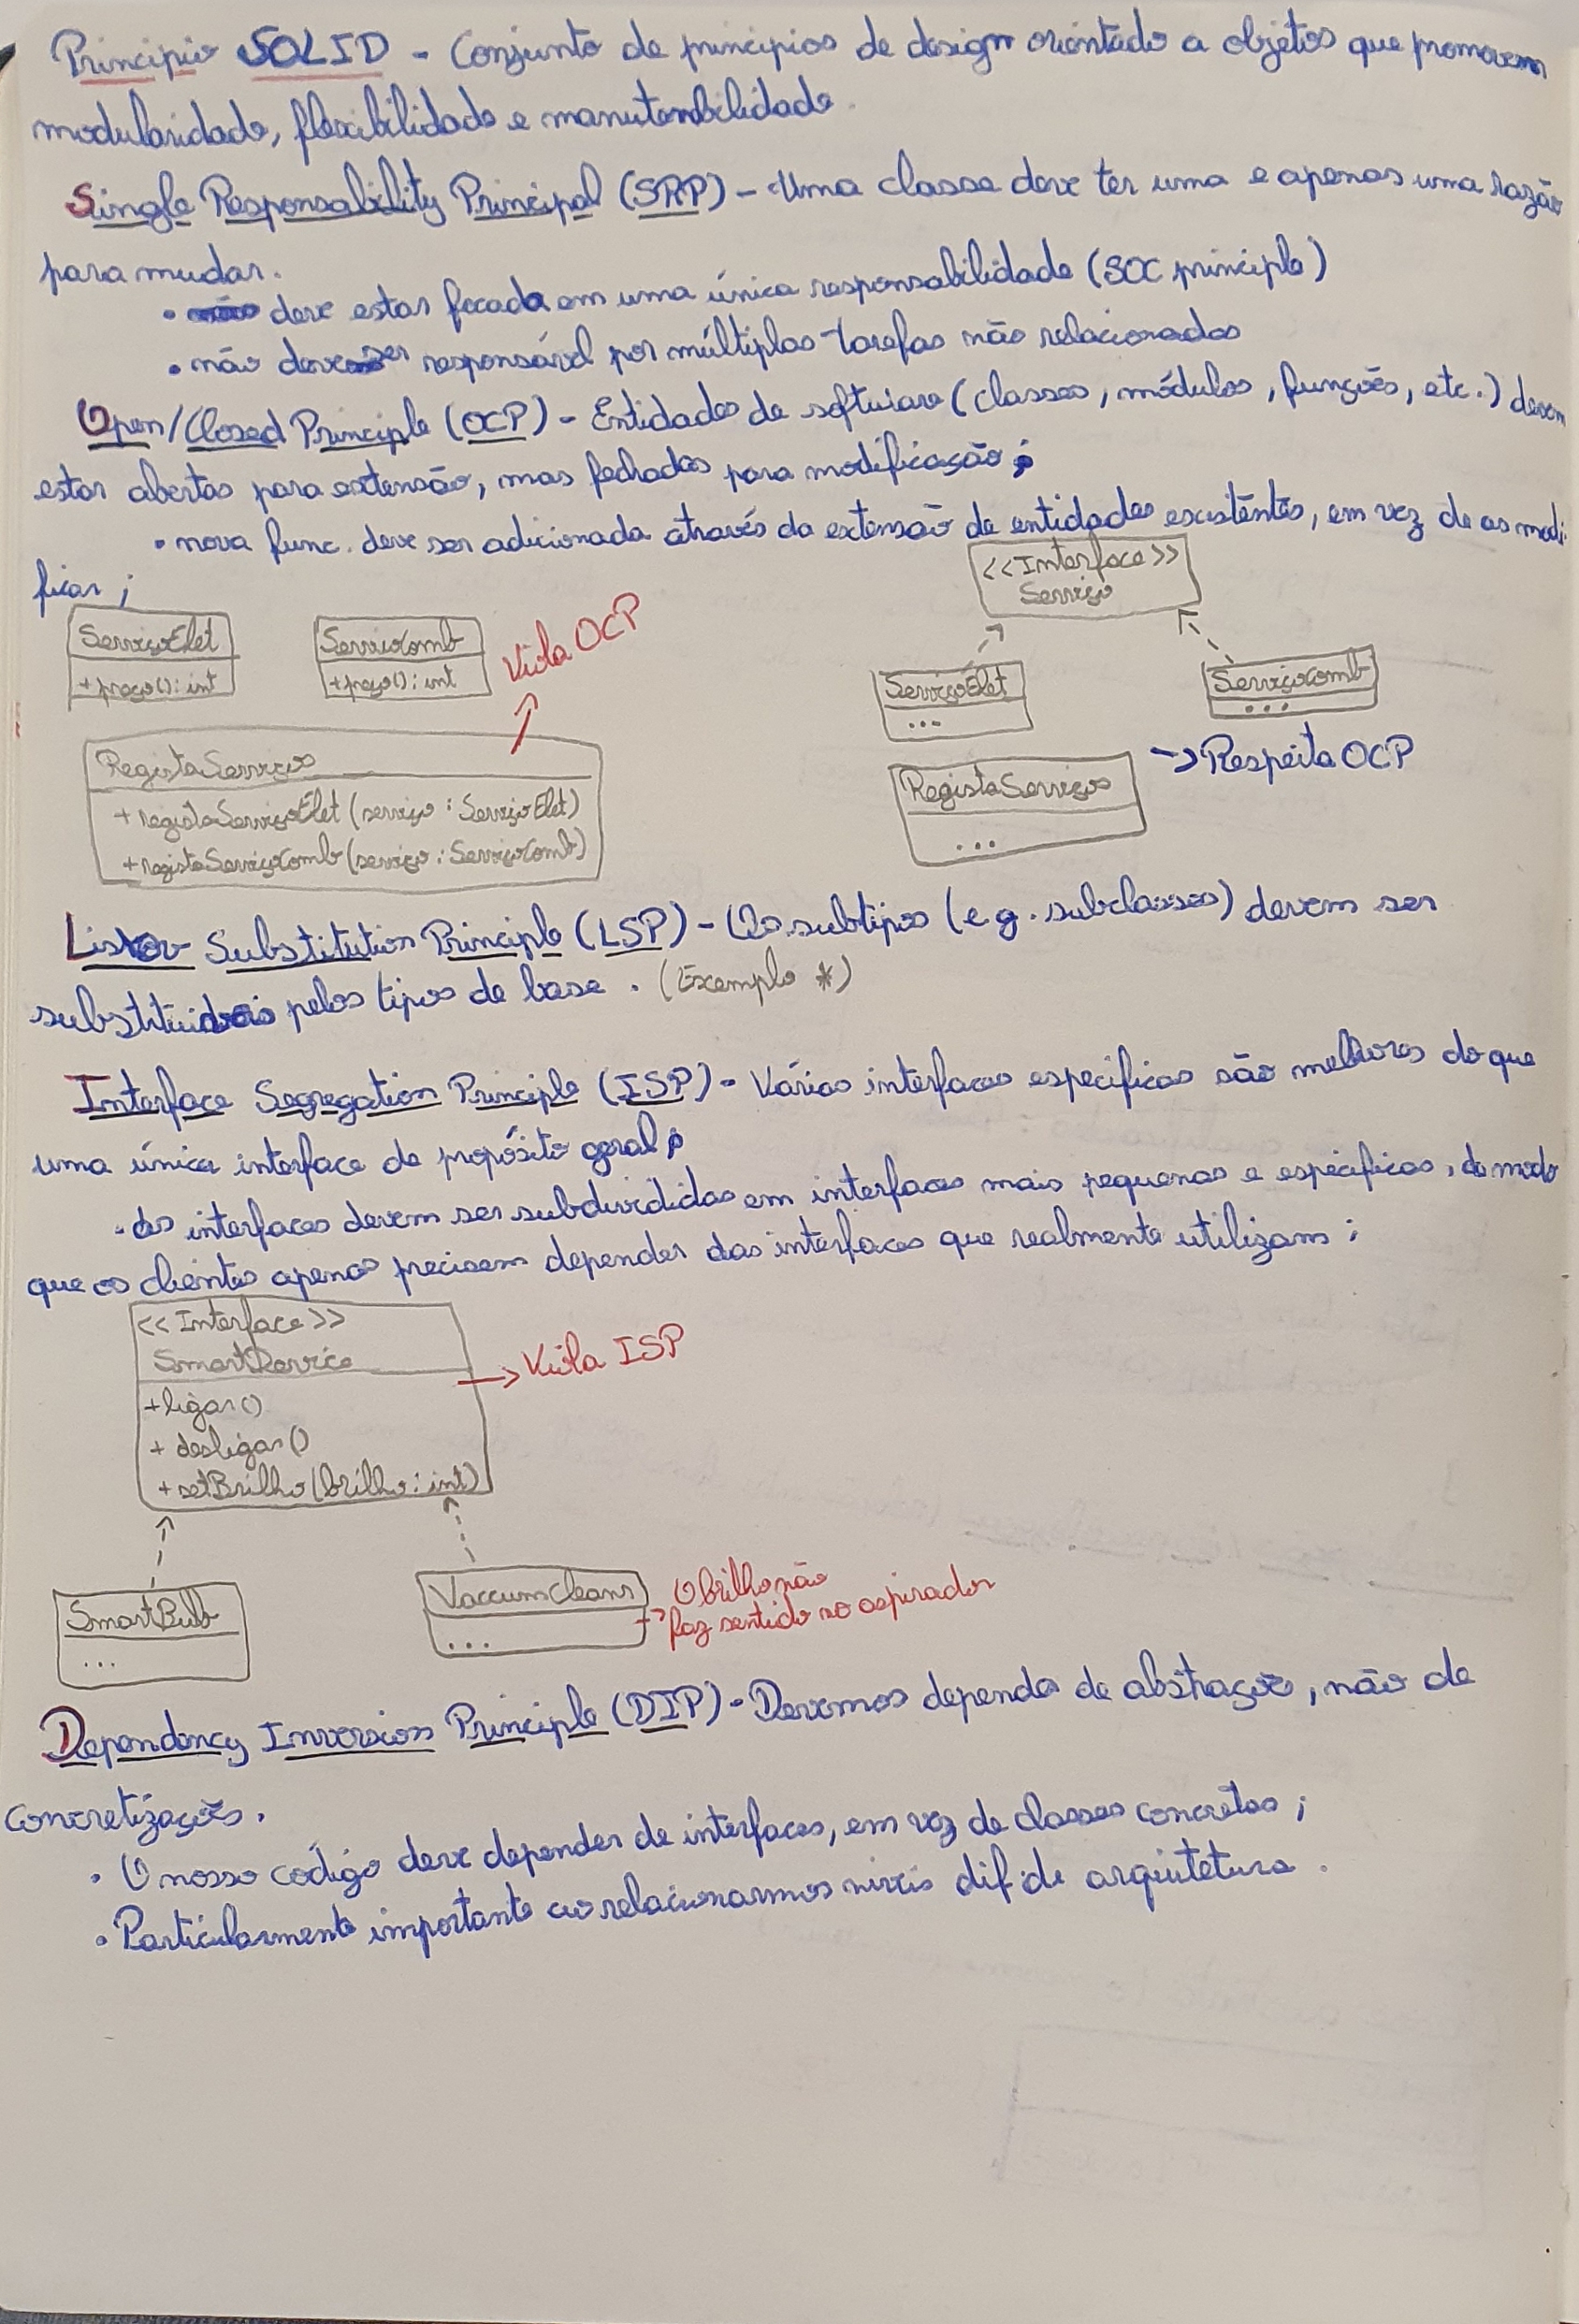 Princípio SOLID - Conjunto de princípios de design orientado a objetos que promovem
modularidade, flexibilidade e manutenibilidade.
Single Responsability Principal (SRP) - Uma classe deve ter uma e apenas uma razão
para mudar.
• deve estar focada em uma única responsabilidade (SOC principle)
• não deve ser responsável por múltiplas tarefas não relacionadas
Open/Closed Principle (OCP) - Entidades de software (classes, módulos, funções, etc.) devem
estar abertas para extensão, mas fechadas para modificação;
• nova func. deve ser adicionada através da extensão de entidades existentes, em vez de as modi-
ficar;
<<Interface>>
Serviço
ServiçoElet
+preço(): int
ServiçoComb
+preço(): int
Viola OCP
ServiçoElet
...
ServiçoComb
...
RegistaServiços
+registaServiçoElet(serviço: ServiçoElet)
+registaServiçoComb(serviço: ServiçoComb)
RegistaServiços
...
→ Respeita OCP
Liskov Substitution Principle (LSP) - Os subtipos (e.g. subclasses) devem ser
substituíveis pelos tipos de base. (Exemplo *)
Interface Segregation Principle (ISP) - Várias interfaces específicas são melhores do que
uma única interface de propósito geral;
• As interfaces devem ser subdivididas em interfaces mais pequenas e específicas, de modo
que os clientes apenas precisem depender das interfaces que realmente utilizam;
<<Interface>>
SmartDevice
+ligar()
+desligar()
+setBrilho(brilho: int)
→ Viola ISP
SmartBulb
...
VaccumCleanr
...
→ O brilho não
faz sentido no aspirador
Dependency Inversion Principle (DIP) - Devemos depender de abstrações, não de
concretizações.
• O nosso código deve depender de interfaces, em vez de classes concretas;
• Particularmente importante ao relacionarmos níveis dif. de arquitetura.